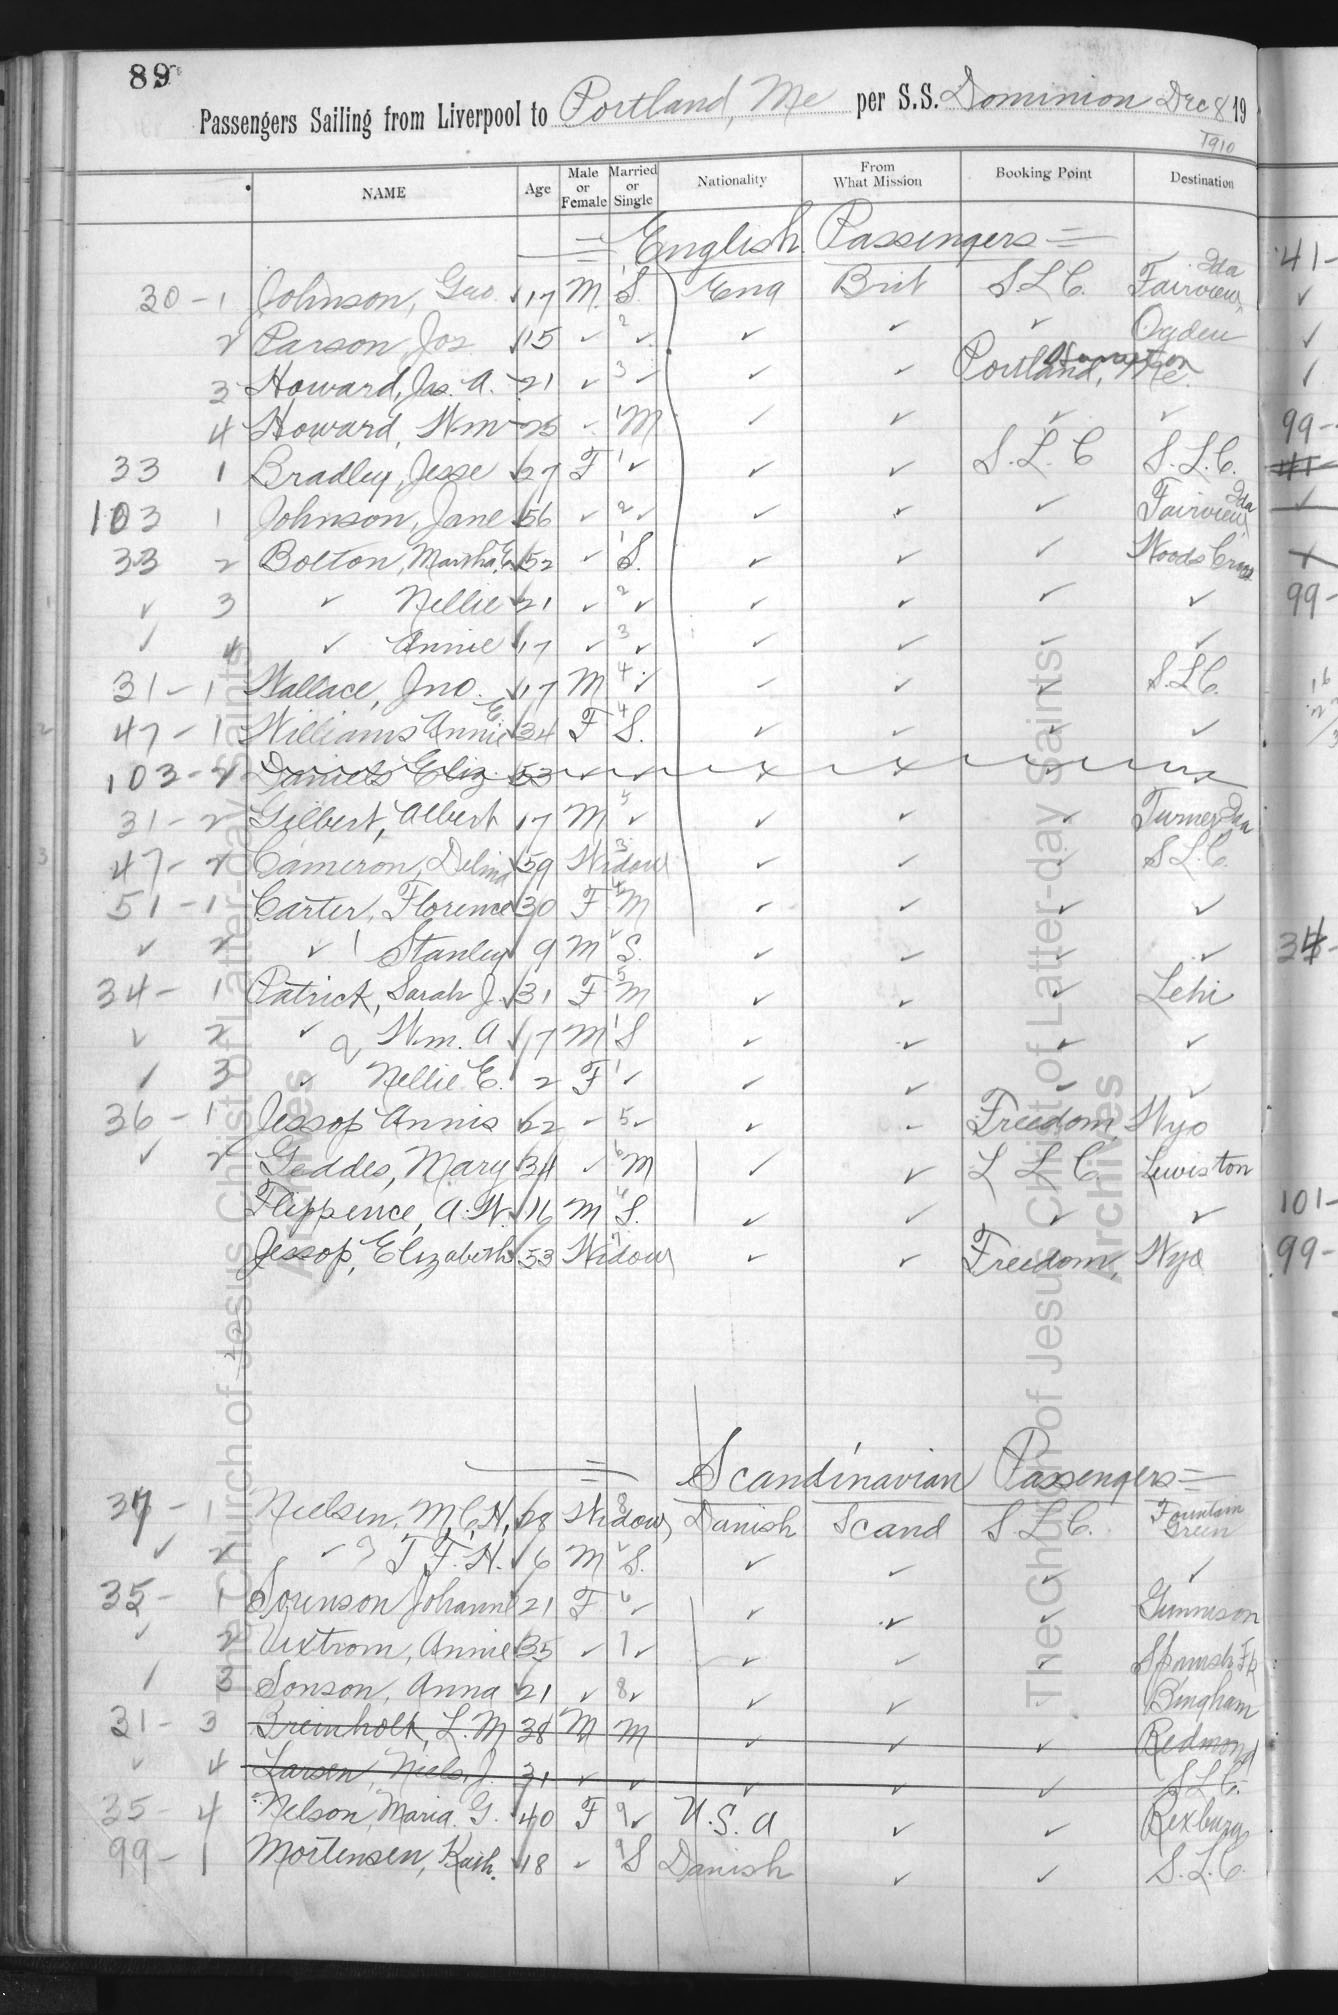 89
Passengers Sailing from Liverpool to Portland, Me per S.S. Dominion Dec 8 19
1910
NAME Age Male or Female Married or Single Nationality From What Mission Booking Point Destination
= English Passengers =
30 - 1 Johnson, Geo. ✓ 17 M 1 S. Eng Brit S L C. Fairview, Ida
2 Parson, Jos ✓ 15 ✓ 2 ✓ ✓ ✓ ✓ Ogden
3 Howard, Jas. A. - 21 ✓ 3 ✓ ✓ ✓ Portland, Me.
4 Howard, Wm - 25 ✓ 1 M ✓ ✓ ✓ ✓
33 1 Bradley, Jesse ✓ 27 F 1 ✓ ✓ ✓ S. L. C S. L. C.
103 1 Johnson, Jane ✓ 56 ✓ 2 ✓ ✓ ✓ ✓ Fairview, Ida
33 2 Bolton, Martha, E ✓ 52 ✓ 1 S. ✓ ✓ ✓ Woods Cross
✓ 3 ✓ Nellie ✓ 21 ✓ 2 ✓ ✓ ✓ ✓ ✓
✓ 4 ✓ Annie ✓ 17 ✓ 3 ✓ ✓ ✓ ✓ ✓
31 - 1 Wallace, Jno. ✓ 17 M 4 ✓ ✓ ✓ ✓ S. L C.
47 - 1 Williams Annie E ✓ 34 F 4 S. ✓ ✓ ✓ ✓
103 - 2 Daniels Eliz. 53 ✓ ✓ ✓ ✓ ✓
31 - 2 Gilbert, Albert ✓ 17 M 5 ✓ ✓ ✓ ✓ Turner, Ida
47 - 2 Cameron, Delina ✓ 59 Widow 3 ✓ ✓ ✓ S L. C.
51 - 1 Carter, Florence ✓ 30 F 4 M ✓ ✓ ✓ ✓
✓ 2 ✓ 1 Stanley ✓ 9 M ✓ S. ✓ ✓ ✓ ✓
34 - 1 Patrick, Sarah J. ✓ 31 F 5 M ✓ ✓ ✓ Lehi
✓ 2 ✓ 2 Wm. A ✓ 7 M 1 S ✓ ✓ ✓ ✓
✓ 3 ✓ Nellie E. ✓ 2 F 1 ✓ ✓ ✓ ✓ ✓
36 - 1 Jessop Annis ✓ 22 ✓ 5 ✓ ✓ ✓ Freedom, Wyo
✓ 2 Geddes, Mary ✓ 34 ✓ 6 M ✓ ✓ S L C. Lewiston
Flippence, A. W. ✓ 16 M 6 S. ✓ ✓ ✓ ✓
Jessop, Elizabeth ✓ 53 Widow 7 ✓ ✓ Freedom, Wyo
= Scandinavian Passengers =
37 - 1 Nielsen, M. C. H. ✓ 28 Widow 8 Danish Scand S L C. Fountain Green
✓ 2 ✓ 3 J F. H. ✓ 6 M ✓ S. ✓ ✓ ✓ ✓
35 - 1 Sorenson Johanne ✓ 21 F 6 ✓ ✓ ✓ ✓ Gunnison
✓ 2 Vixtrom, Annie ✓ 35 ✓ 7 ✓ ✓ ✓ ✓ Spanish Fk
✓ 3 Sonson, Anna ✓ 21 ✓ 8 ✓ ✓ ✓ ✓ Bingham
31 - 3 Breinholt, L. M ✓ 38 M M ✓ ✓ ✓ Redmond
✓ 4 Larsen, Niels J. 31 ✓ ✓ ✓ ✓ ✓ S L C.
35 - 4 Nelson, Maria G. ✓ 40 F 9 ✓ U. S. A ✓ ✓ Rexburg
99 - 1 Mortensen, Kath. ✓ 18 ✓ 9 S Danish ✓ ✓ S. L. C.
The Church of Jesus Christ of Latter-day Saints
Archives
The Church of Jesus Christ of Latter-day Saints
Archives
41 -
99 -
99 -
34 -
101 -
99 -